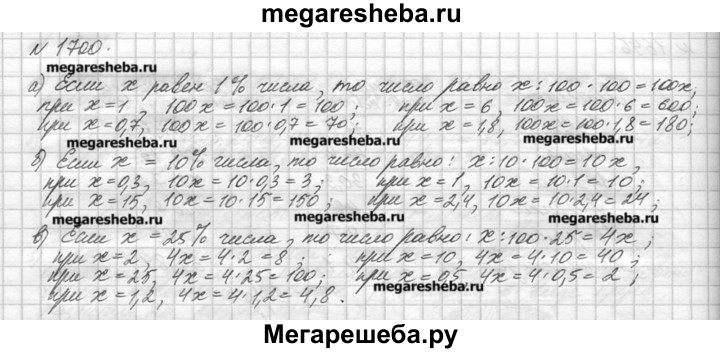 megaresheba.ru
№ 1700.
megaresheba.ru
а) Если x равен 1% числа, то число равно x:100·100=100x;
при x=1, 100x=100·1=100; при x=6, 100x=100·6=600;
при x=0,7, 100x=100·0,7=70; при x=1,8, 100x=100·1,8=180;
megaresheba.ru megaresheba.ru
б) Если x = 10% числа, то число равно: x:10·100=10x,
при x=0,3, 10x=10·0,3=3; при x=1, 10x=10·1=10;
при x=15, 10x=10·15=150; при x=2,4, 10x=10·2,4=24;
megaresheba.ru megaresheba.ru
в) Если x = 25% числа, то число равно: x:100·25=4x;
при x=2, 4x=4·2=8; при x=10, 4x=4·10=40;
при x=25, 4x=4·25=100; при x=0,5 4x=4·0,5=2;
megaresheba.ru
при x=1,2, 4x=4·1,2=4,8.
Мегарешеба.ру